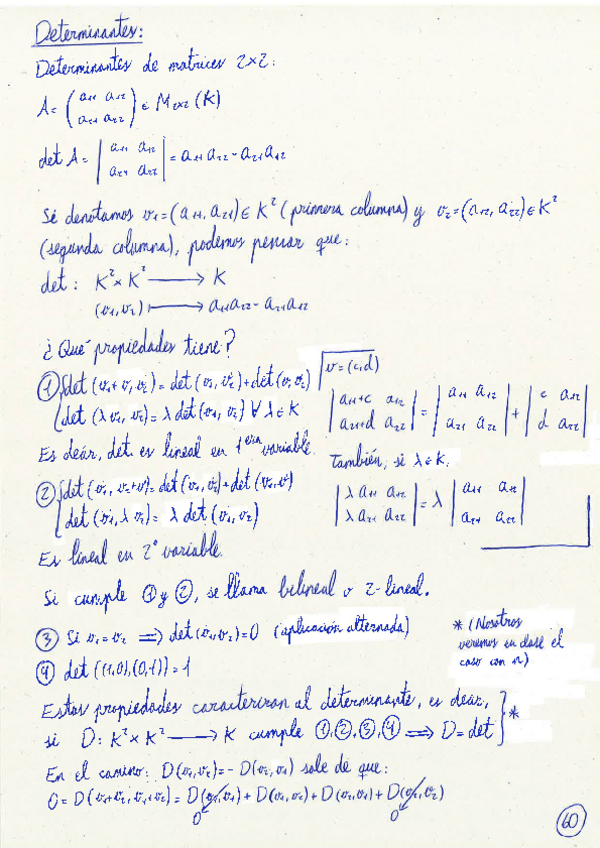 Determinantes:
Determinantes de matrices 2x2:
A = ( a₁₁ a₁₂ ) ∈ M₂ₓ₂ (K)
a₂₁ a₂₂
det A = | a₁₁ a₁₂ | = a₁₁a₂₂ - a₂₁a₁₂
a₂₁ a₂₂
Si denotamos v₁=(a₁₁, a₂₁) ∈ K² (primera columna) y v₂=(a₁₂, a₂₂) ∈ K²
(segunda columna), podemos pensar que:
det: K² x K² ⟶ K
(v₁,v₂) ⟼ a₁₁a₂₂ - a₂₁a₁₂
¿Qué propiedades tiene?
① { det (v₁+v, v₂) = det (v₁, v₂) + det (v, v₂)
det (λv₁, v₂) = λ det (v₁, v₂) ∀ λ ∈ K
Es decir, det. es lineal en 1era variable.
v=(c,d)
| a₁₁+c a₁₂ | = | a₁₁ a₁₂ | + | c a₁₂ |
a₂₁+d a₂₂ a₂₁ a₂₂ d a₂₂
También, si λ ∈ K.
| λa₁₁ a₁₂ | = λ | a₁₁ a₁₂ |
λa₂₁ a₂₂ a₂₁ a₂₂
② { det (v₁, v₂+v) = det (v₁, v₂) + det (v₁, v)
det (v₁, λv₂) = λ det (v₁, v₂)
Es lineal en 2ª variable.
Si cumple ① y ②, se llama bilineal o 2-lineal.
③ Si v₁=v₂ ⟹ det (v₁, v₂)=0 (aplicación alternada)
④ det ((1,0),(0,1)) = 1
* (Nosotros
veremos en clase el
caso con n)
Estas propiedades caracterizan al determinante, es decir,
si D: K² x K² ⟶ K cumple ①,②,③,④ ⟹ D = det } *
En el camino: D(v₁,v₂) = - D(v₂,v₁) sale de que:
0 = D(v₁+v₂, v₁+v₂) = D(v₁,v₁) + D(v₁,v₂) + D(v₂,v₁) + D(v₂,v₂)
0 0
60